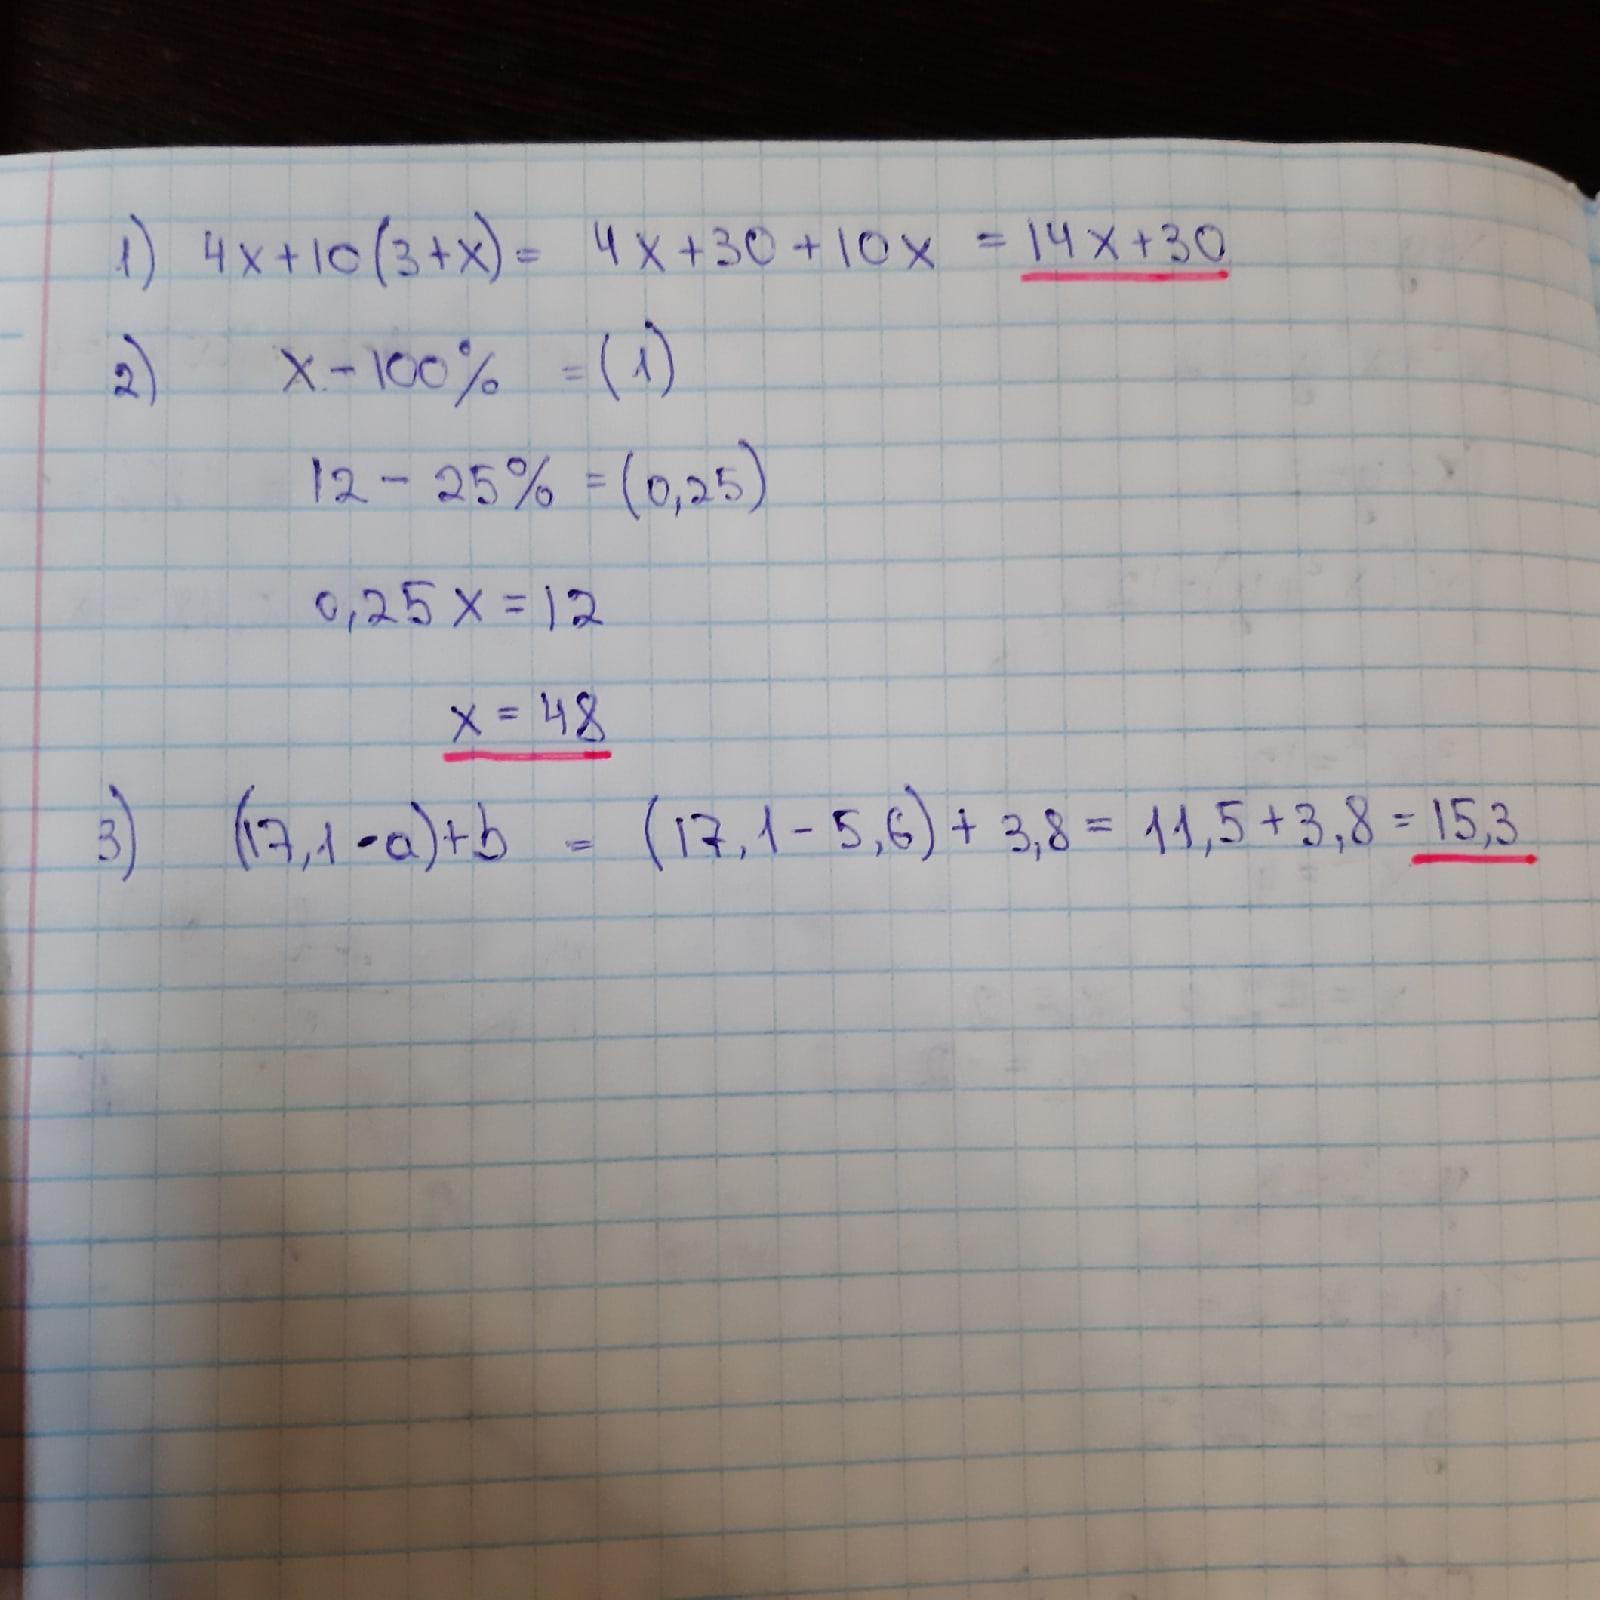 1) 4x+10(3+x)= 4x+30+10x =14x+30
2) x-100% =(1)
12-25% =(0,25)
0,25x=12
x=48
3) (17,1-a)+b = (17,1-5,6)+3,8= 11,5+3,8=15,3